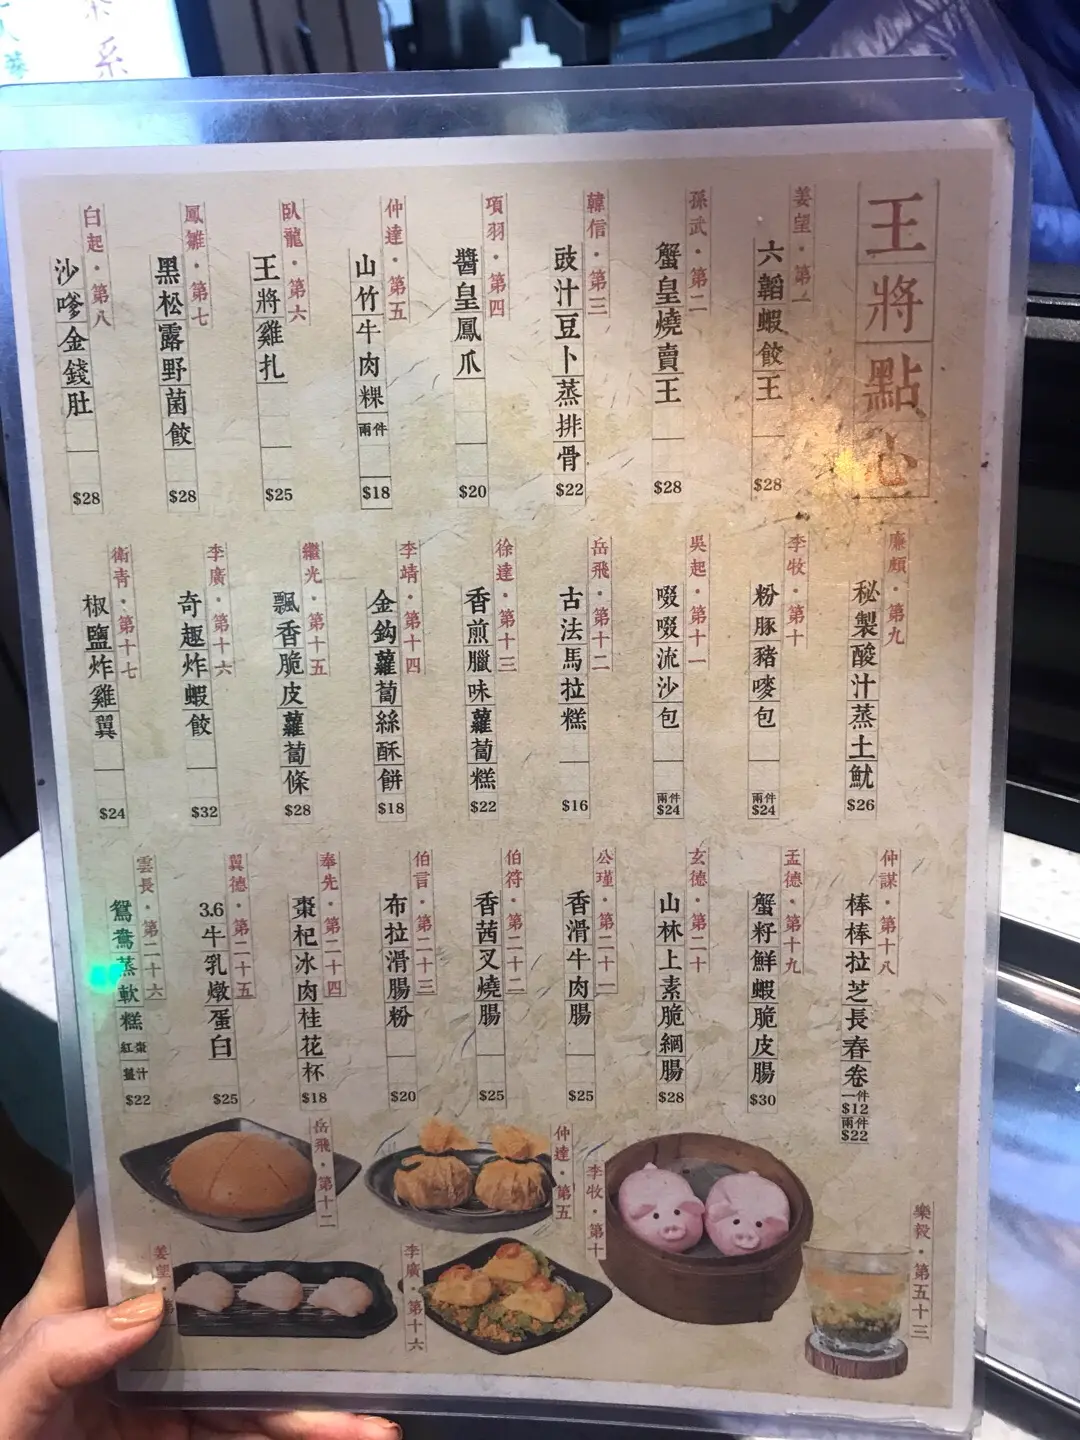 王將點心
姜望·第一
六韜蝦餃王
$28
孫武·第二
蟹皇燒賣王
$28
韓信·第三
豉汁豆卜蒸排骨
$22
項羽·第四
醬皇鳳爪
$20
仲達·第五
山竹牛肉粿 兩件
$18
臥龍·第六
王將雞扎
$25
鳳雛·第七
黑松露野菌餃
$28
白起·第八
沙嗲金錢肚
$28
廉頗·第九
秘製酸汁蒸土魷
$26
李牧·第十
粉豚豬嘜包
兩件
$24
吳起·第十一
啜啜流沙包
兩件
$24
岳飛·第十二
古法馬拉糕
$16
徐達·第十三
香煎臘味蘿蔔糕
$22
李靖·第十四
金鈎蘿蔔絲酥餅
$18
繼光·第十五
飄香脆皮蘿蔔條
$28
李廣·第十六
奇趣炸蝦餃
$32
衛青·第十七
椒鹽炸雞翼
$24
仲謀·第十八
棒棒拉芝長春卷
一件
$12
兩件
$22
孟德·第十九
蟹籽鮮蝦脆皮腸
$30
玄德·第二十
山林上素脆網腸
$28
公瑾·第二十一
香滑牛肉腸
$25
伯符·第二十二
香茜叉燒腸
$25
伯言·第二十三
布拉滑腸粉
$20
奉先·第二十四
棗杞冰肉桂花杯
$18
翼德·第二十五
3.6牛乳燉蛋白
$25
雲長·第二十六
鴛鴦蒸軟糕
紅棗
薑汁
$22
岳飛·第十二
仲達·第五
李牧·第十
樂毅·第五十三
姜望·第
李廣·第十六